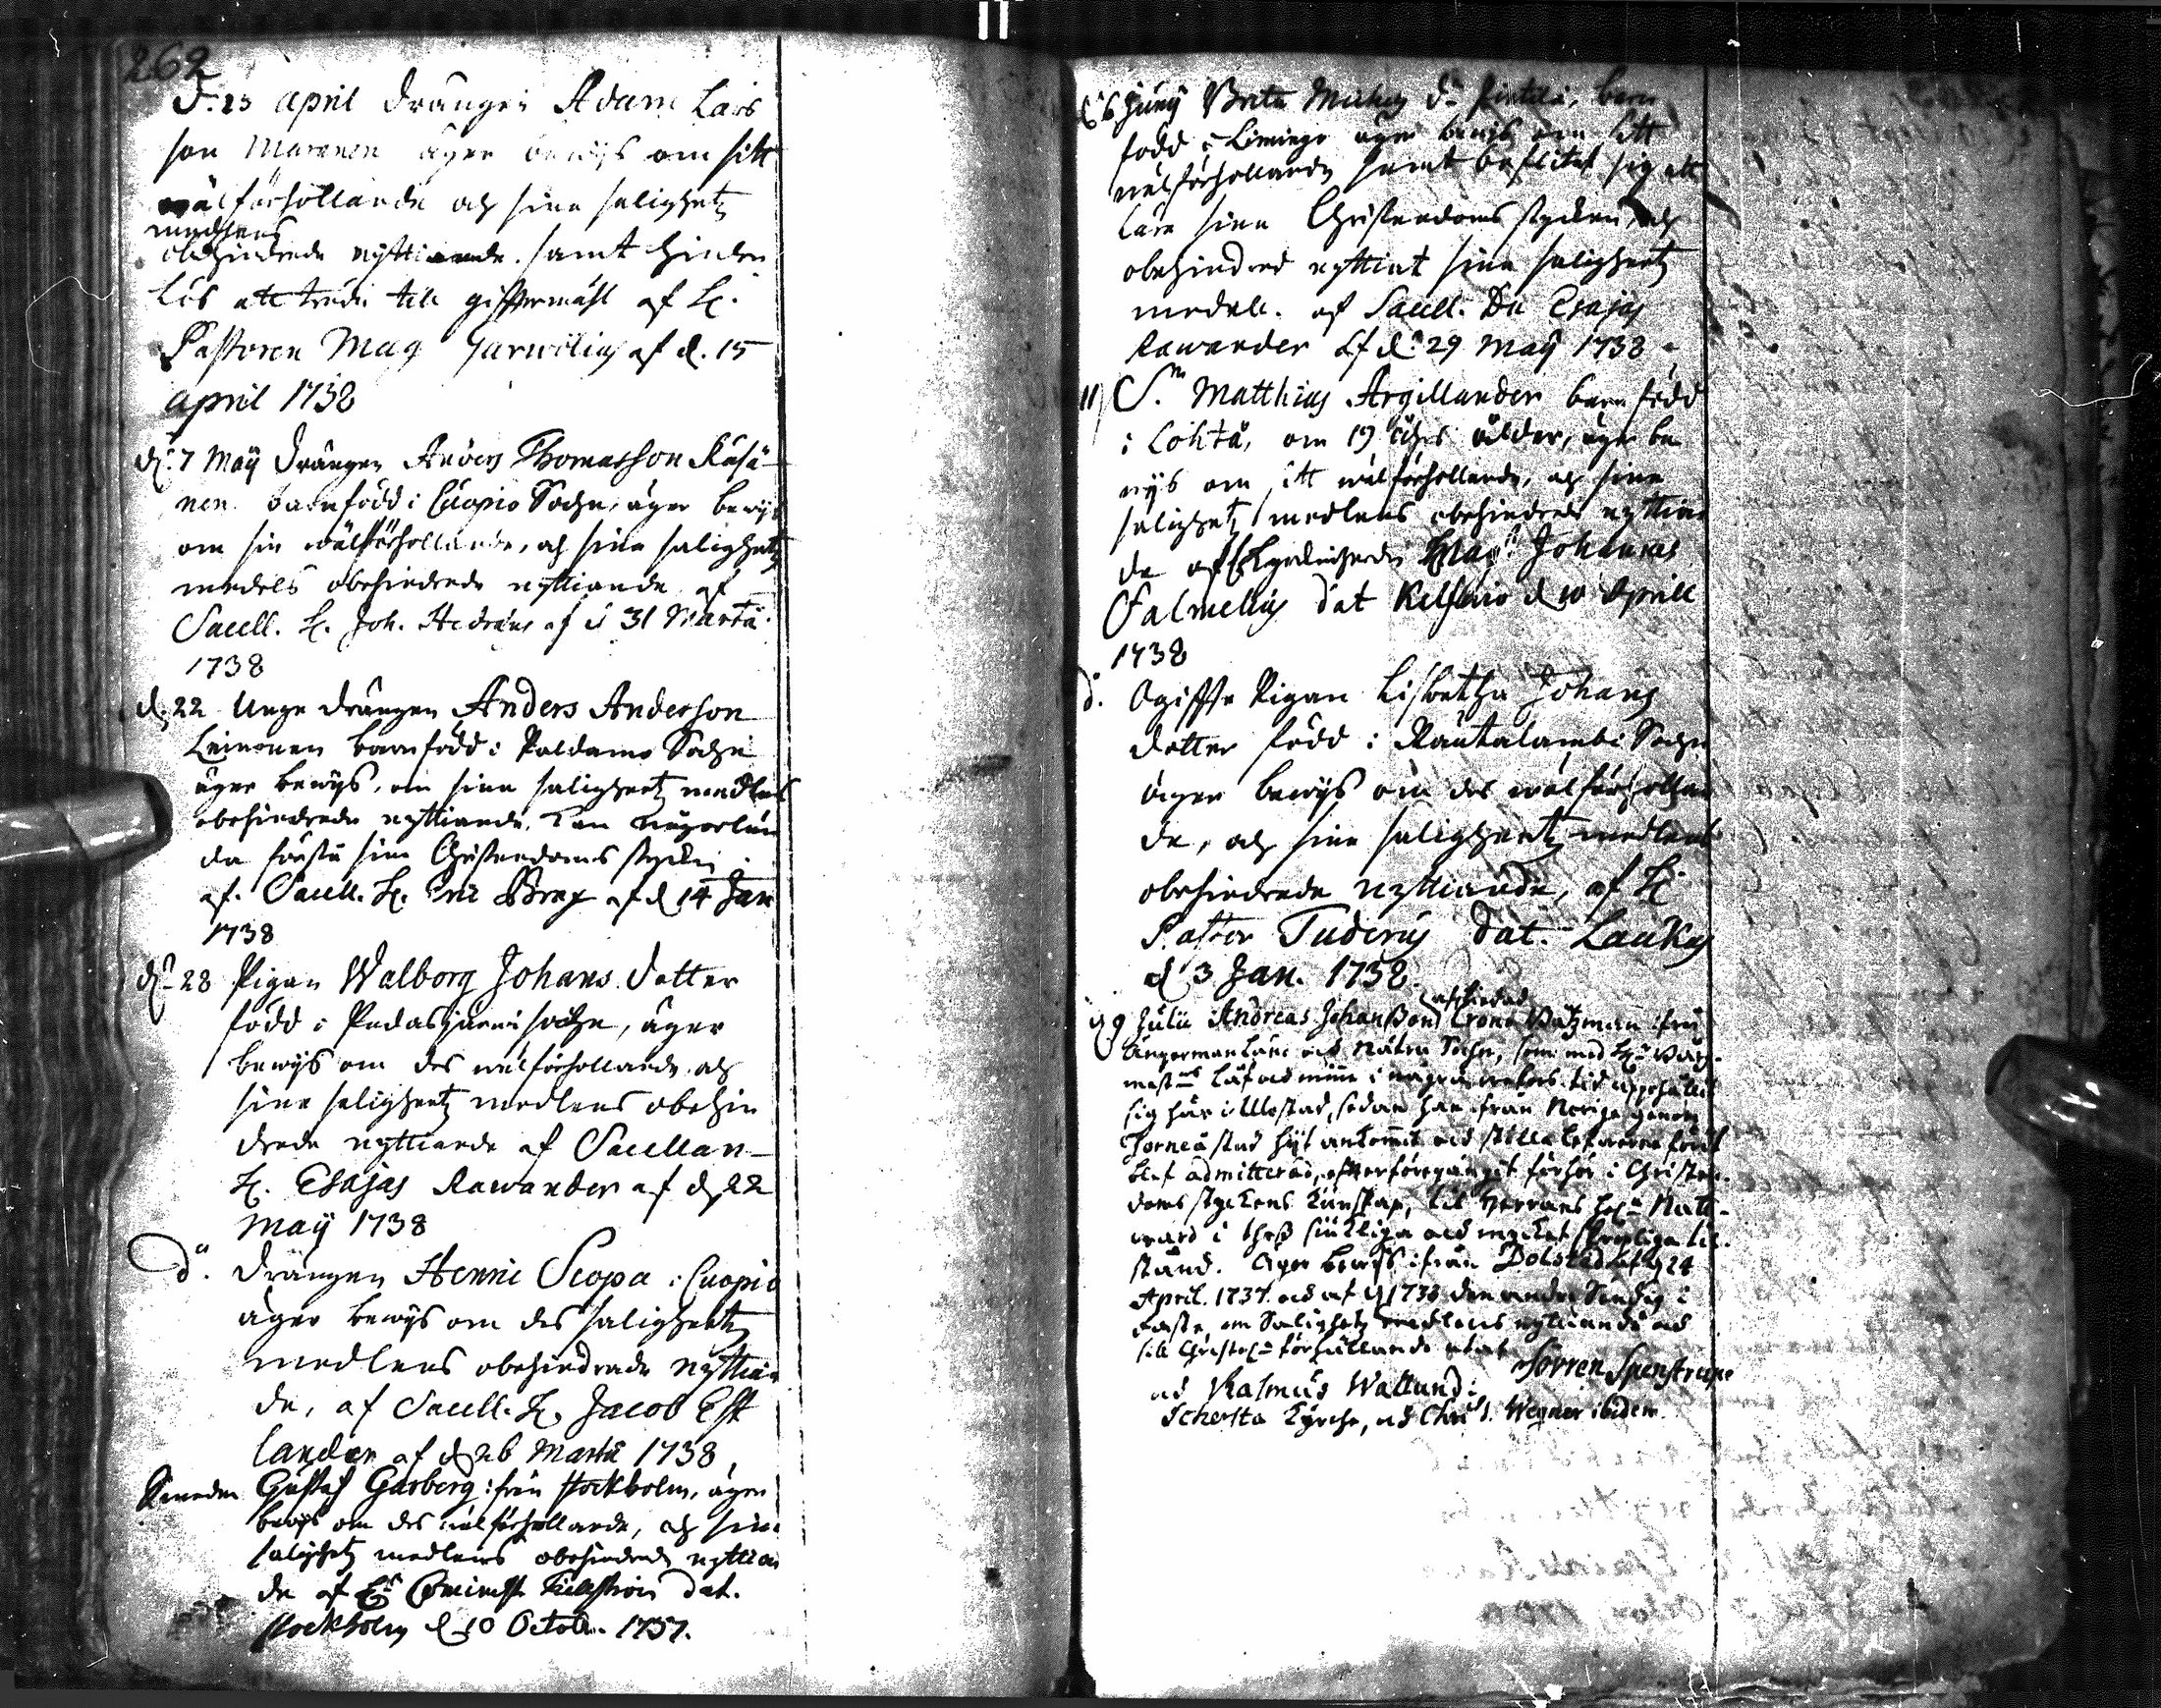 262
d. 23 april drängen Adam Lars
son Marenen äger bewijs om sitt
wälförhollande och sine salighetz
medlens
obehindrede nyttiande. samt hinder
lös att träda till gifftermåhl af H.
Pastoren Mag Jarwilius af d. 15
april 1738
d. 7 Maÿ drängen Anders Thomasson Räsä-
nen barnfödd i Cuopio Sochn, äger bewijs
om sin wälförhollande, och sine salighetz
medels obehindrede nyttiande af
Sacell. H. Joh. Hedræus af d 31 Martii
1738
d. 22 Unge drängen Anders Anderson
Leinonen barnfödd i Paldamo Sochn
äger bewijs, om sine salighetz medlens
obehindrede nyttiande. Kan någorlun
da förstå sine Christendoms stycken
af. Sacell. H. Eric Brag af d 14 Jan
1738
d. 28 Pigan Walborg Johans dotter
född i Padasjärwi sochn, äger
bewijs om des wälförhollande och
sine salighetz medlens obehin
drede nyttiande af Sacellan-
H. Esajas Rawander af d 22
Maÿ 1738
d. drängen Henric Scopa i Cuopio
äger bewijs om des salighetz
medlens obehindrade nyttian
de, af Sacell. H. Jacob Est
lander af d 26 Martii 1738
Gustaf Garberg ifrån Stockholm, äger
bewijs om des wälförhollande, och sine
salighetz medlens obehindrede nyttian
de af dat.
Stockholm d 10 Octob. 1737.
d 6 Junÿ Brita Michels dr barn
född i Limingo äger bewijs om sitt
wälförhollande samt beflitat sig att
lära sine Christendoms stycken och
obehindred nyttiat sine salighetz
medell. af Sacell. Dn Esajas
Rawander af d 29 Maÿ 1738
11 Matthias Argillander barnfödd
i Lohtå, om 19 åhrs ålder, äger be
wijs om sitt wälförhollande, och sine
salighetz medlens obehindrede nyttian
de af Mag. Johannes
Falmelius dat d 10 Aprill
1738
d. Ogiffte Pigan Lisbetha Johans
dotter född i Rautalambi Sochn
äger bewijs om des wälförhollan
de, och sine salighetz medlens
obehindrede nyttiande, af H.
Pastor Tuderus dat. Laukas
d 3 Jan. 1738.
afskedad
d 9 Julii Andreas Johansson Crono Båtzman ifrån
Ångermanland och Nätra Sochn, som med
i några weckors tid uppehållit
sig här i Ulostad, sedan han ifrån Norige genom
Torneå stad hijt ankommit och stilla lefwerne fördt
blef admitterad, efter föregånget förhör i Christen-
doms styckens kunskap, til Herrans Natt-
ward i thess siukliga och mycket til-
stånd. Äger bewijs ifrån Bolstad af d 24
April. 1737. och af d 1738 den andra Söndag i
Fasta, om Salighetz medlens nyttiande och
sitt Christel. förhållande utaf
Sörren Spenstrup
och Rasmus Wallund i
kyrcho, och Christ. Wegner ibidem.